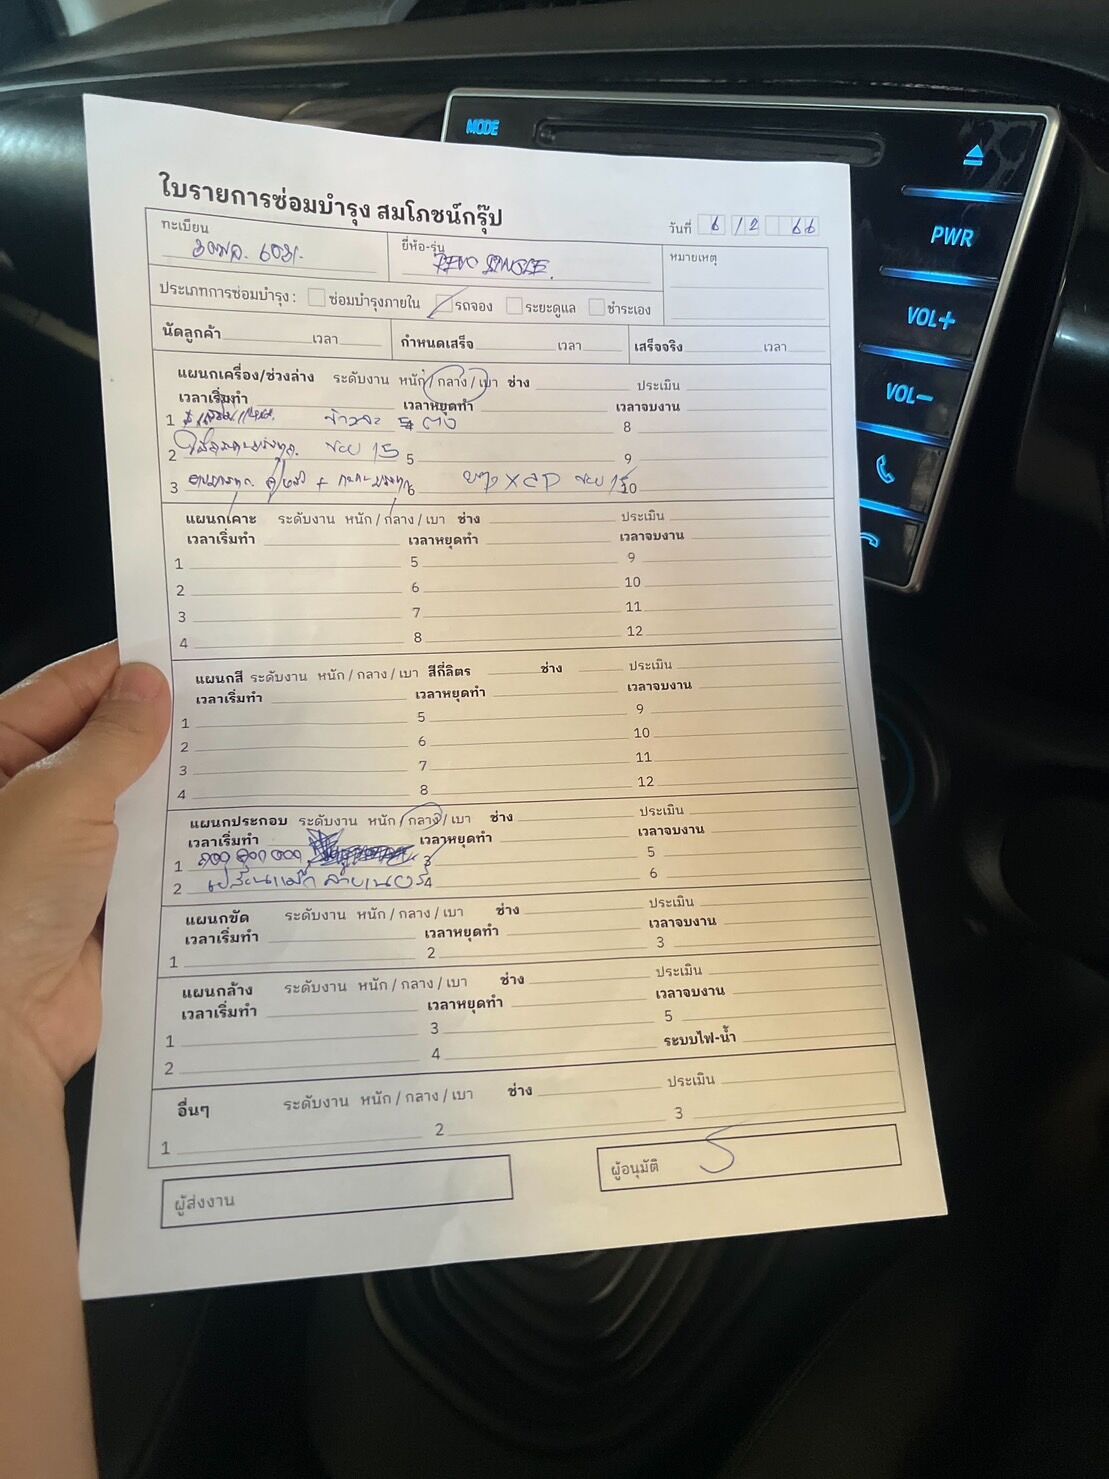 MODE
PWR
VOL+
VOL−
ใบรายการซ่อมบำรุง สมโภชน์กรุ๊ป
วันที่ 6 / 2 66
ทะเบียน
ยี่ห้อ-รุ่น REVO SINGLE
หมายเหตุ
ประเภทการซ่อมบำรุง : ซ่อมบำรุงภายใน รถจอง ระยะดูแล ชำระเอง
นัดลูกค้า เวลา กำหนดเสร็จ เวลา เสร็จจริง เวลา
แผนกเครื่อง/ช่วงล่าง ระดับงาน หนัก / กลาง / เบา ช่าง ประเมิน
เวลาเริ่มทำ เวลาหยุดทำ เวลาจบงาน
1 8
2 15 5 9
3 + 6 10
แผนกเคาะ ระดับงาน หนัก / กลาง / เบา ช่าง ประเมิน
เวลาเริ่มทำ เวลาหยุดทำ เวลาจบงาน
1 5 9
2 6 10
3 7 11
4 8 12
แผนกสี ระดับงาน หนัก / กลาง / เบา สีกี่ลิตร ช่าง ประเมิน
เวลาเริ่มทำ เวลาหยุดทำ เวลาจบงาน
1 5 9
2 6 10
3 7 11
4 8 12
แผนกประกอบ ระดับงาน หนัก / กลาง / เบา ช่าง ประเมิน
เวลาเริ่มทำ เวลาหยุดทำ เวลาจบงาน
1 3 5
2 4 6
แผนกขัด ระดับงาน หนัก / กลาง / เบา ช่าง ประเมิน
เวลาเริ่มทำ เวลาหยุดทำ เวลาจบงาน
1 2 3
แผนกล้าง ระดับงาน หนัก / กลาง / เบา ช่าง ประเมิน
เวลาเริ่มทำ เวลาหยุดทำ เวลาจบงาน
1 3 5
2 4 ระบบไฟ-น้ำ
อื่นๆ ระดับงาน หนัก / กลาง / เบา ช่าง ประเมิน
1 2 3
ผู้ส่งงาน
ผู้อนุมัติ